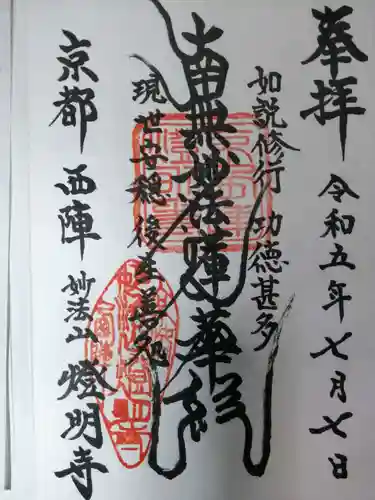 奉拝
令和五年七月七日
如説修行 功徳甚多
南無妙法蓮華経
現世安穏 後生善処
京都 西陣
妙法山 燈明寺